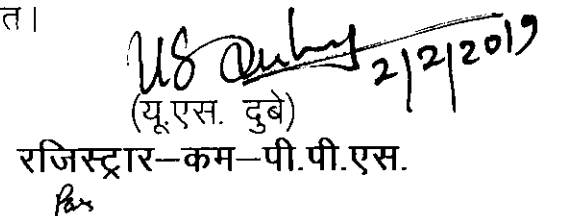 त।
US Dubey 2/2/2019
(यू.एस. दुबे)
रजिस्ट्रार–कम–पी.पी.एस.